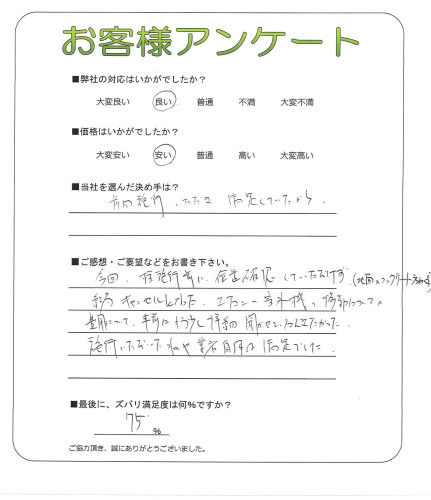 お客様アンケート
■弊社の対応はいかがでしたか？
大変良い 良い 普通 不満 大変不満
■価格はいかがでしたか？
大変安い 安い 普通 高い 大変高い
■当社を選んだ決め手は？
前回施行いただき 満足していたから。
■ご感想・ご要望などをお書き下さい。
今回、施行前に 確認していただけず
(地面がコンクリート
キャンセルとなった。エアコン室外機の移動について、
費用について、事前にもう少し詳細聞かせていただきたかった。
施行いただいた 業者自体は満足でした。
■最後に、ズバリ満足度は何％ですか？
75 %
ご協力頂き、誠にありがとうございました。